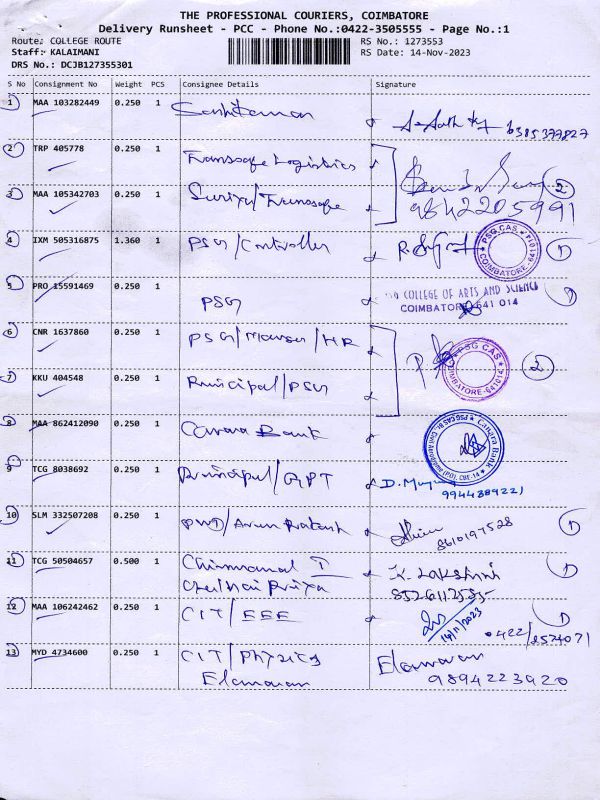 THE PROFESSIONAL COURIERS, COIMBATORE
Delivery Runsheet - PCC - Phone No.:0422-3505555 - Page No.:1
Route: COLLEGE ROUTE RS No.: 1273553
Staff: KALAIMANI RS Date: 14-Nov-2023
DRS No.: DCJB127355301
S No Consignment No Weight PCS Consignee Details Signature
1 MAA 103282449 0.250 1
6385377827
2 TRP 405778 0.250 1 Transsafe Logistics
3 MAA 105342703 0.250 1 /Transsafe 2
9842205991
4 IXM 505316875 1.360 1 PSG/Controller PSG CAS COIMBATORE-641014 1
5 PRO 15591469 0.250 1 PSG COLLEGE OF ARTS AND SCIENCE 1
COIMBATORE 641 014
6 CNR 1637860 0.250 1 PSG/Manager/HR PSG CAS COIMBATORE-641014 2
7 KKU 404548 0.250 1 Principal/PSG
8 MAA 862412090 0.250 1 Canara Bank Canara Bank
9 TCG 8038692 0.250 1 Principal/GPT D.
9944389221
10 SLM 332507208 0.250 1 /Arun Prakash 8610197528 1
11 TCG 50504657 0.500 1 Chinnamal I K. Lakshmi 1
Priya 8526112585
12 MAA 106242462 0.250 1 CIT/EEE 14/11/2023 1
0422/2574071
13 MYD 4734600 0.250 1 CIT/Physics Elamaran
Elamaran 9894223920